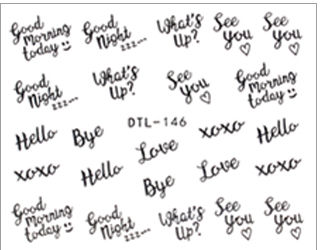 Good Morning today
Good Night zzz...
What's Up?
See you
See you
Good Night zzz...
What's Up?
See you
Good Morning today
DTL-146
Hello
Bye
Love
xoxo
Hello
xoxo
Hello
Bye
Love
xoxo
Good Morning today
Good Night zzz...
What's Up?
See you
See you